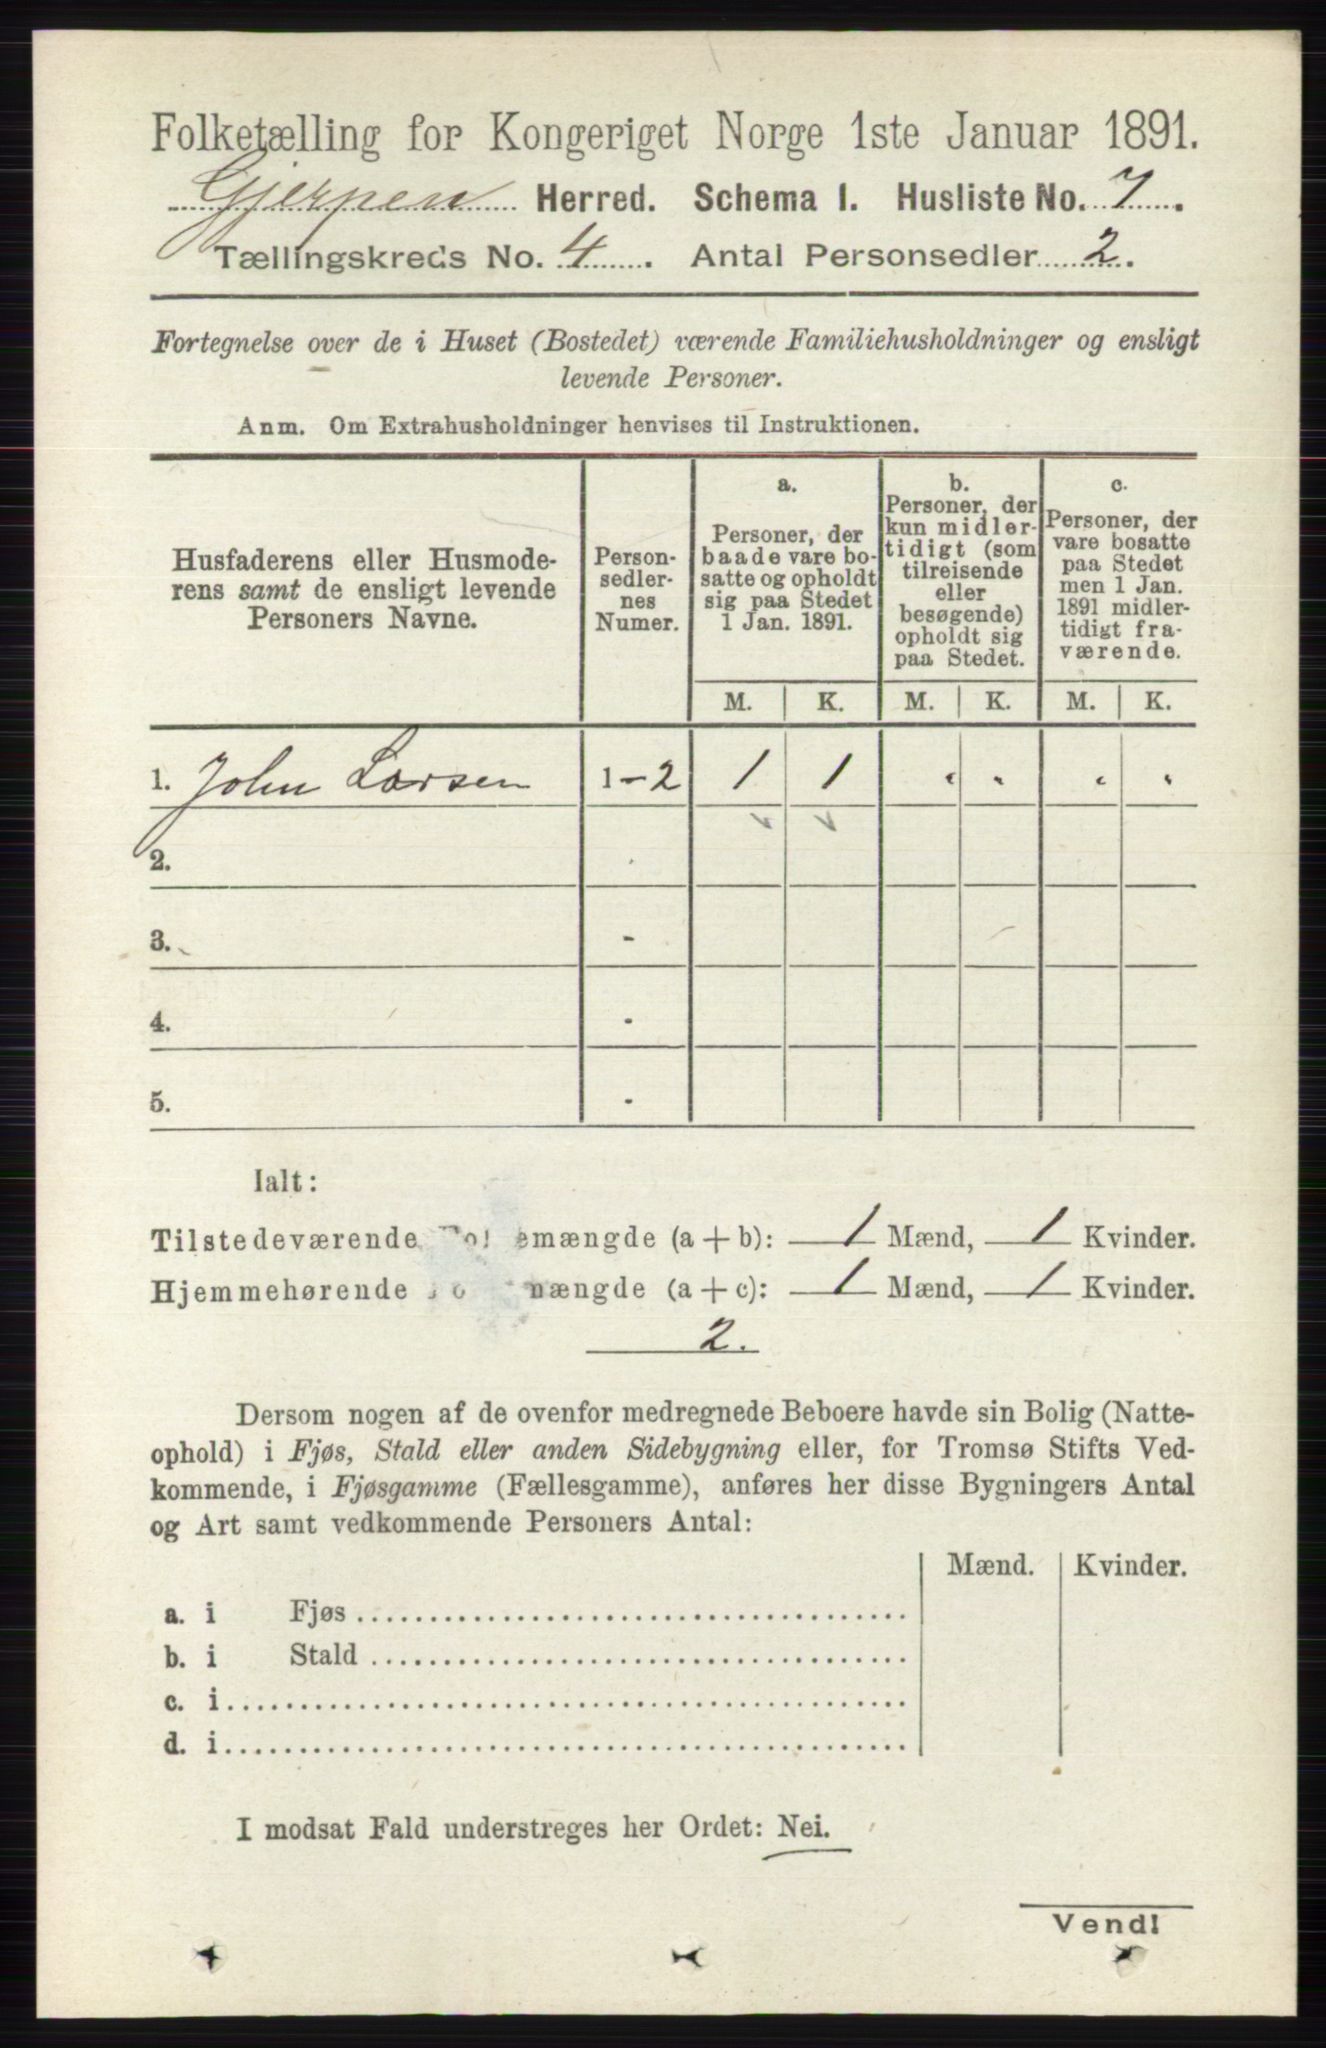 Folketælling for Kongeriget Norge 1ste Januar 1891.
Gjerpen Herred. Schema 1. Husliste No. 7.
Tællingskreds No. 4. Antal Personsedler 2.
Fortegnelse over de i Huset (Bostedet) værende Familiehusholdninger og ensligt
levende Personer.
Anm. Om Extrahusholdninger henvises til Instruktionen.
Husfaderens eller Husmode-
rens samt de ensligt levende
Personers Navne.
Person-
sedler-
nes
Numer.
a.
Personer, der
baade vare bo-
satte og opholdt
sig paa Stedet
1 Jan. 1891.
b.
Personer, der
kun midler-
tidigt (som
tilreisende
eller
besøgende)
opholdt sig
paa Stedet.
c.
Personer, der
vare bosatte
paa Stedet
men 1 Jan.
1891 midler-
tidigt fra-
værende.
M. K. M. K. M. K.
1. John Larsen 1-2 1 1 " " " "
2.
3. -
4. -
5. -
Ialt:
Tilstedeværende (a + b): 1 Mænd, 1 Kvinder.
Hjemmehørende (a + c): 1 Mænd, 1 Kvinder.
2.
Dersom nogen af de ovenfor medregnede Beboere havde sin Bolig (Natte-
ophold) i Fjøs, Stald eller anden Sidebygning eller, for Tromsø Stifts Ved-
kommende, i Fjøsgamme (Fællesgamme), anføres her disse Bygningers Antal
og Art samt vedkommende Personers Antal:
Mænd. Kvinder.
a. i Fjøs
b. i Stald
c. i
d. i
I modsat Fald understreges her Ordet: Nei.
Vend!